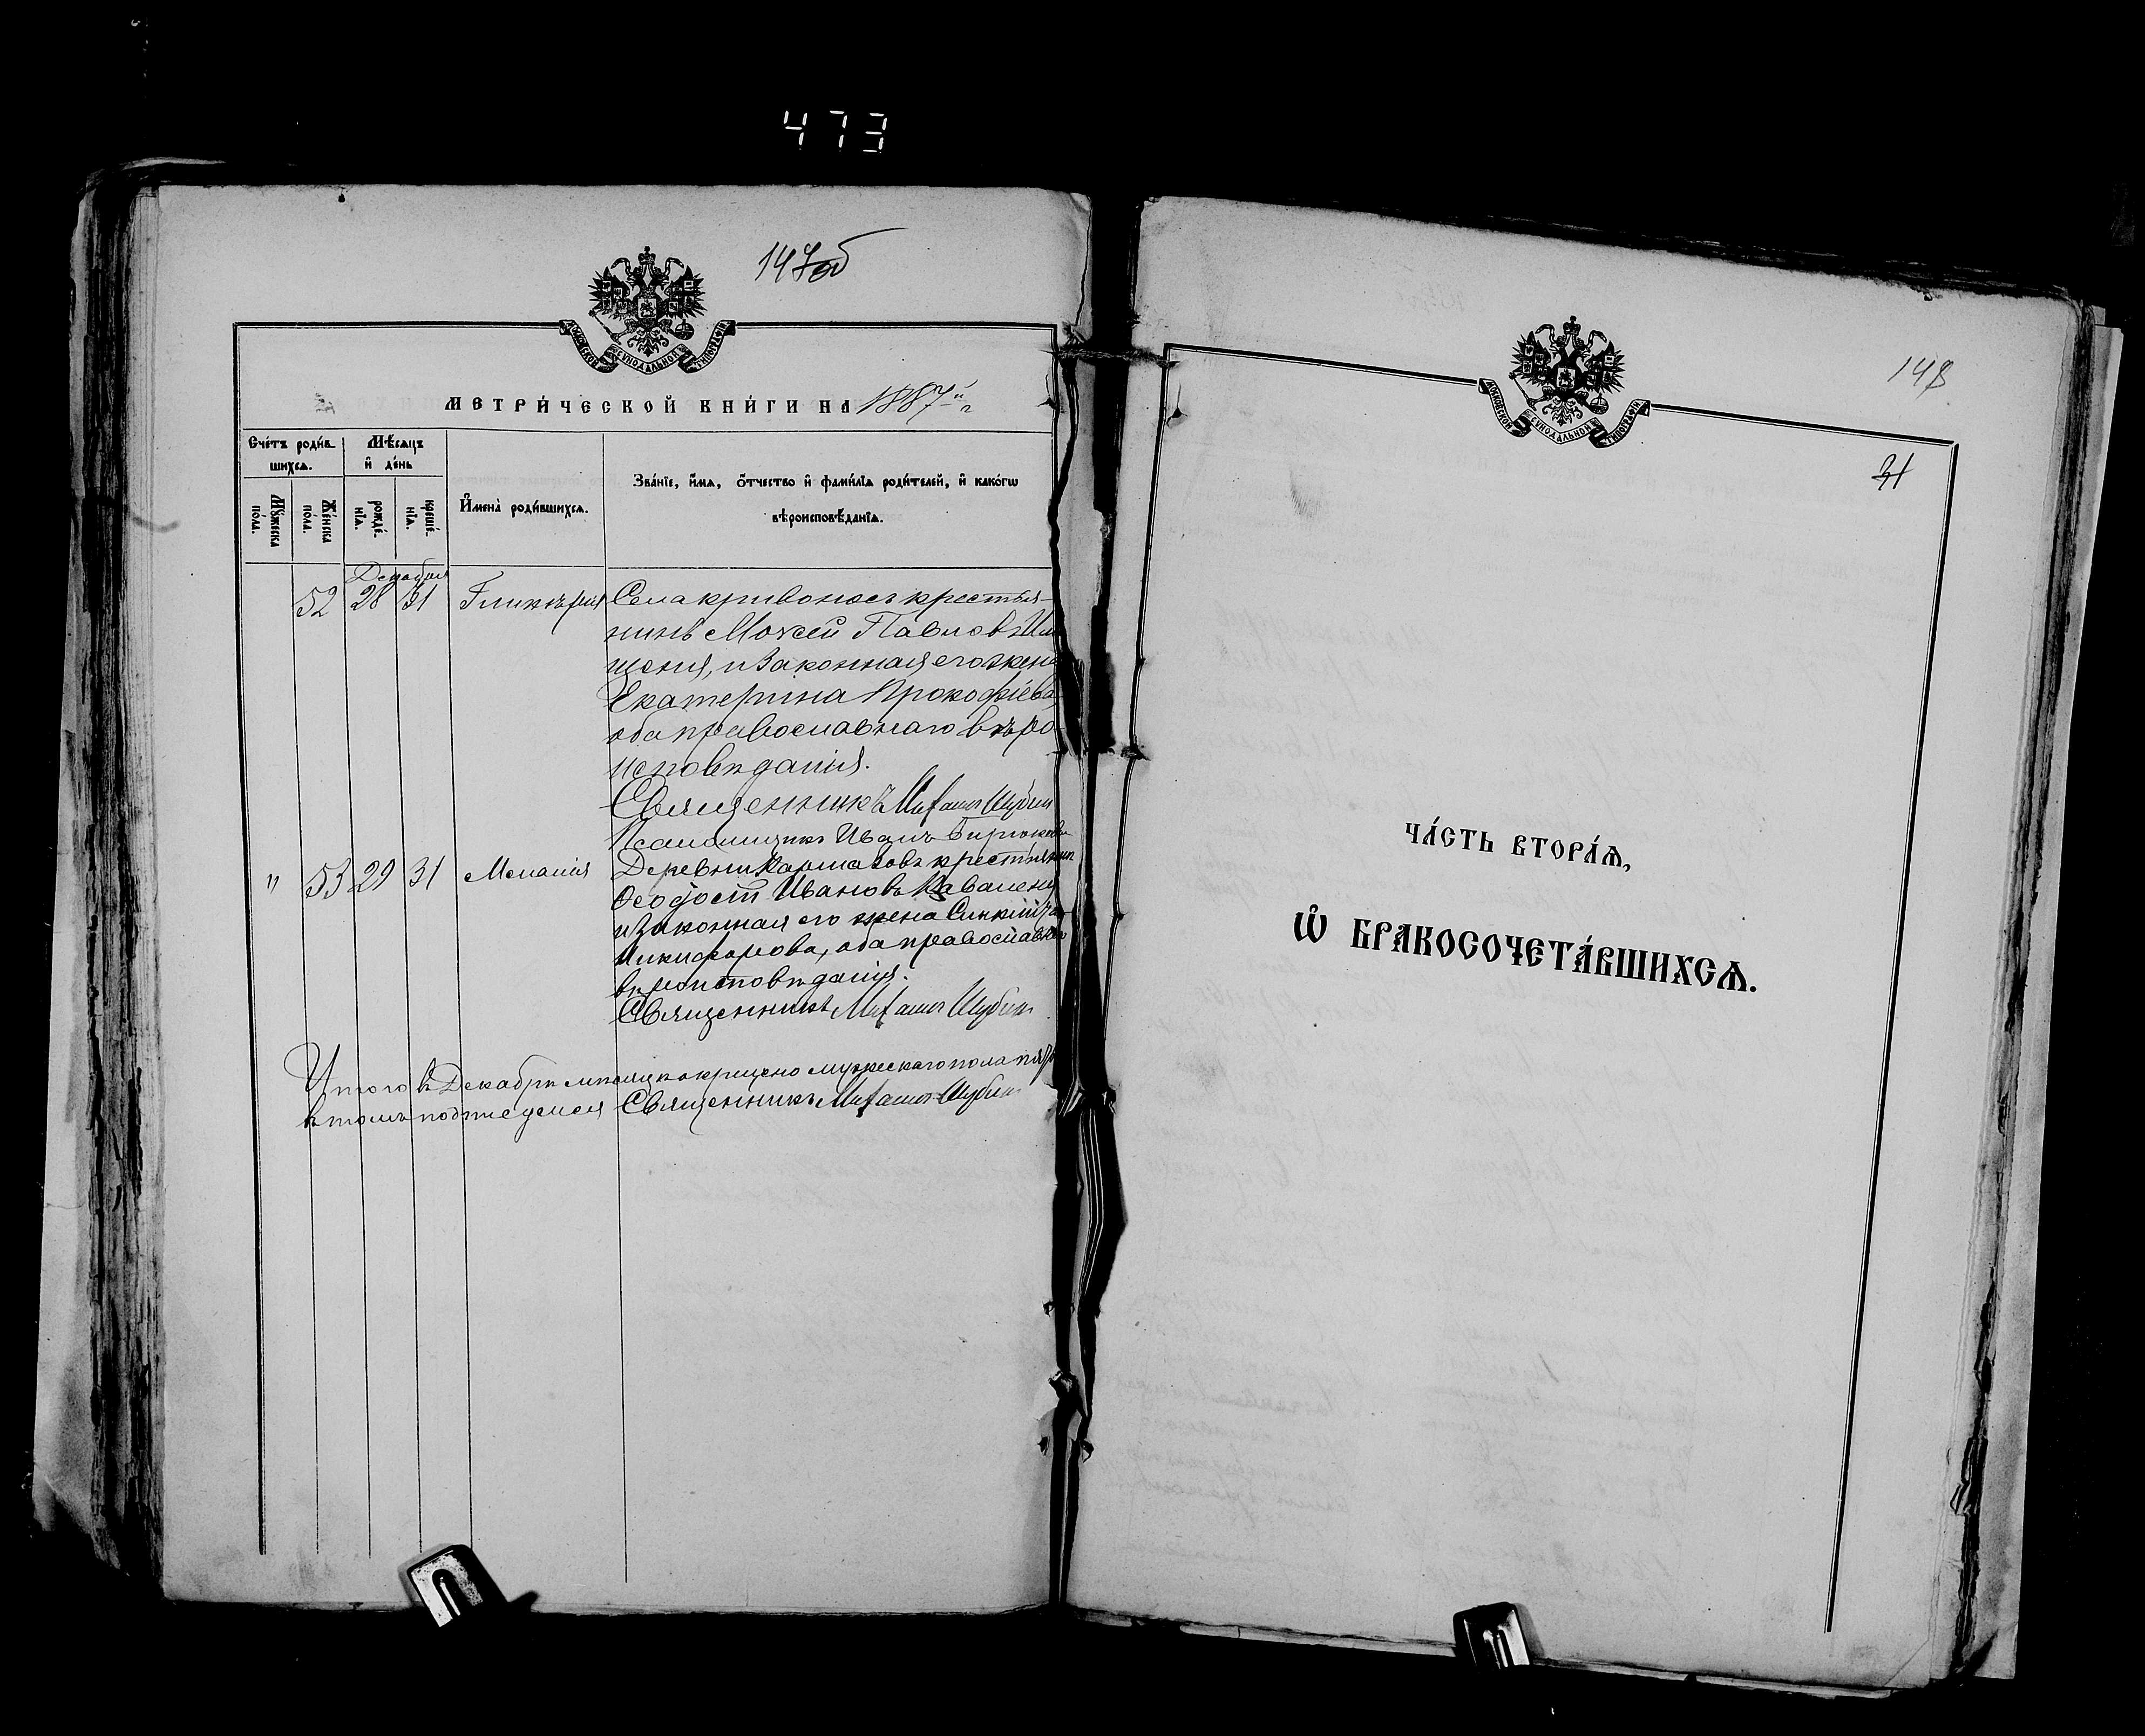 473
147об
МОСКОВСКОЙ СѴНОДАЛЬНОЙ ТИПОГРАФІИ
МЕТРИ́ЧЕСКОЙ КНИ́ГИ НА 1887й г
Сче́тъ роди́в-
шихсѧ.
Мѣсѧцъ
и҆ де́нь
Мꙋ́жеска
по́ла.
Же́нска
по́ла.
рожде́-
нїѧ.
креще́-
нїѧ.
И҆мена̀ роди́вшихсѧ.
Зва́нїе, и҆́мѧ, ѻ҆́тчество и҆ фами́лїѧ роди́телей, и҆ како́гѡ
вѣроисповѣ́данїѧ.
Декабря
52 28 31 Гликерія Села Кривоносъ крестья-
нинъ Моѵсей Павловъ
и законная его жена
Екатерина Прокофіева,
оба православнаго вѣро
исповѣданія.
Священникъ Михаилъ Шубин
Псаломщикъ Иванъ Бирюковъ
" 53 29 31 Меланія Деревни крестьянин
Ѳеодосій Ивановъ
и законная его жена
Никифорова, оба православнаго
вѣроисповѣданія.
Священникъ Михаилъ Шубин
Итого в Декабрѣ мѣсяцѣ крещено мужескаго пола
в томъ подписуемся Священникъ Михаилъ Шубин
148
МОСКОВСКОЙ СѴНОДАЛЬНОЙ ТИПОГРАФІИ
31
ЧА́СТЬ ВТОРА́Ѧ,
Ѡ҆ БРАКОСОЧЕТА́ВШИХСѦ.